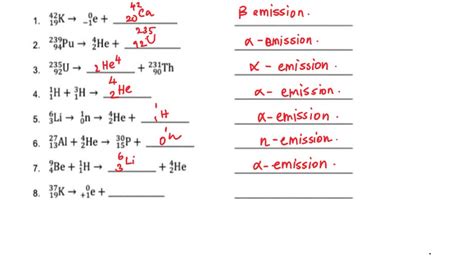 1. ⁴²₁₉K → ⁰₋₁e + ⁴²₂₀Ca β emission.
2. ²³⁹₉₄Pu → ⁴₂He + ²³⁵₉₂U α-emission.
3. ²³⁵₉₂U → ₂He⁴ + ²³¹₉₀Th α-emission.
4. ¹₁H + ³₁H → ⁴₂He α-emission.
5. ⁶₃Li → ¹₀n → ⁴₂He + ¹₁H α-emission.
6. ²⁷₁₃Al + ⁴₂He → ³⁰₁₅P + ¹₀n n-emission.
7. ⁹₄Be + ¹₁H → ⁶₃Li + ⁴₂He α-emission.
8. ³⁷₁₉K → ⁰₊₁e +